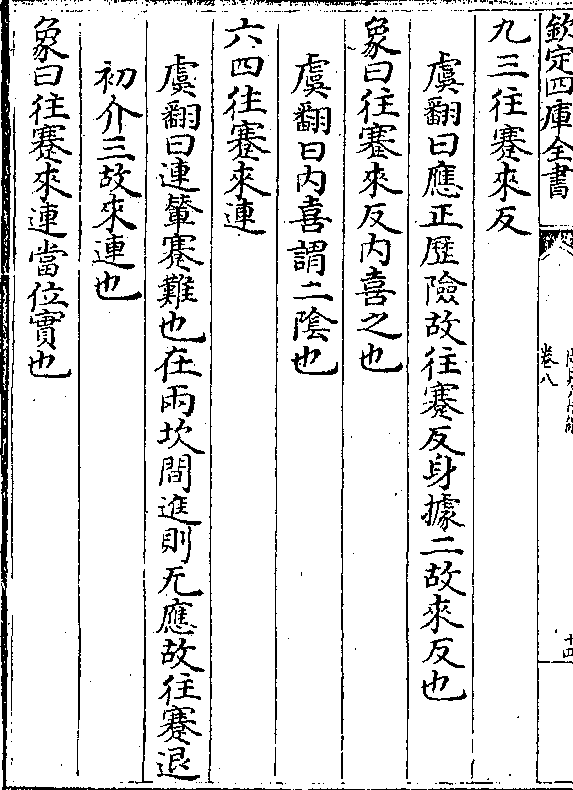 欽定四庫全書
卷八
十四
九三往蹇來反
虞翻曰應正歷險故往蹇反身據二故來反也
象曰往蹇來反内喜之也
虞翻曰内喜謂二陰也
六四往蹇來連
虞翻曰連輦蹇難也在兩坎間進則无應故往蹇退
初介三故來連也
象曰往蹇來連當位實也